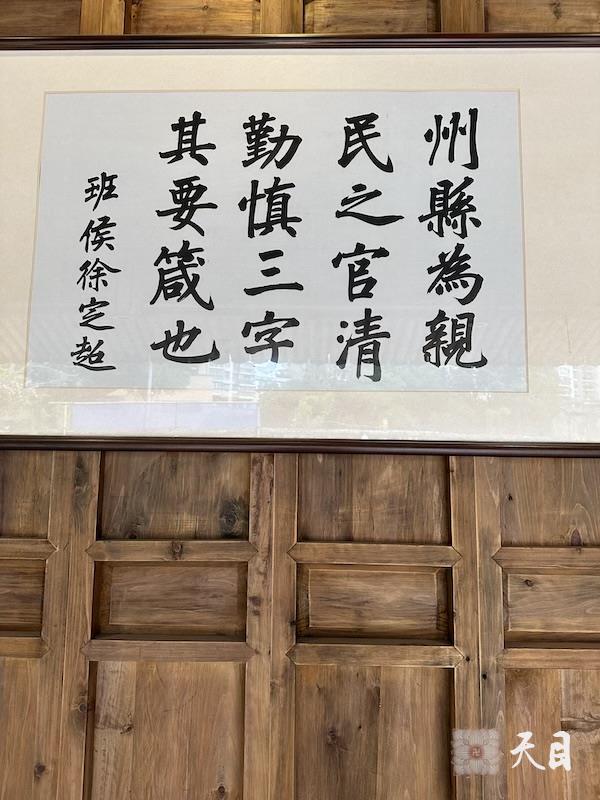 州縣為親
民之官清
勤慎三字
其要箴也
班侯徐定超
天目